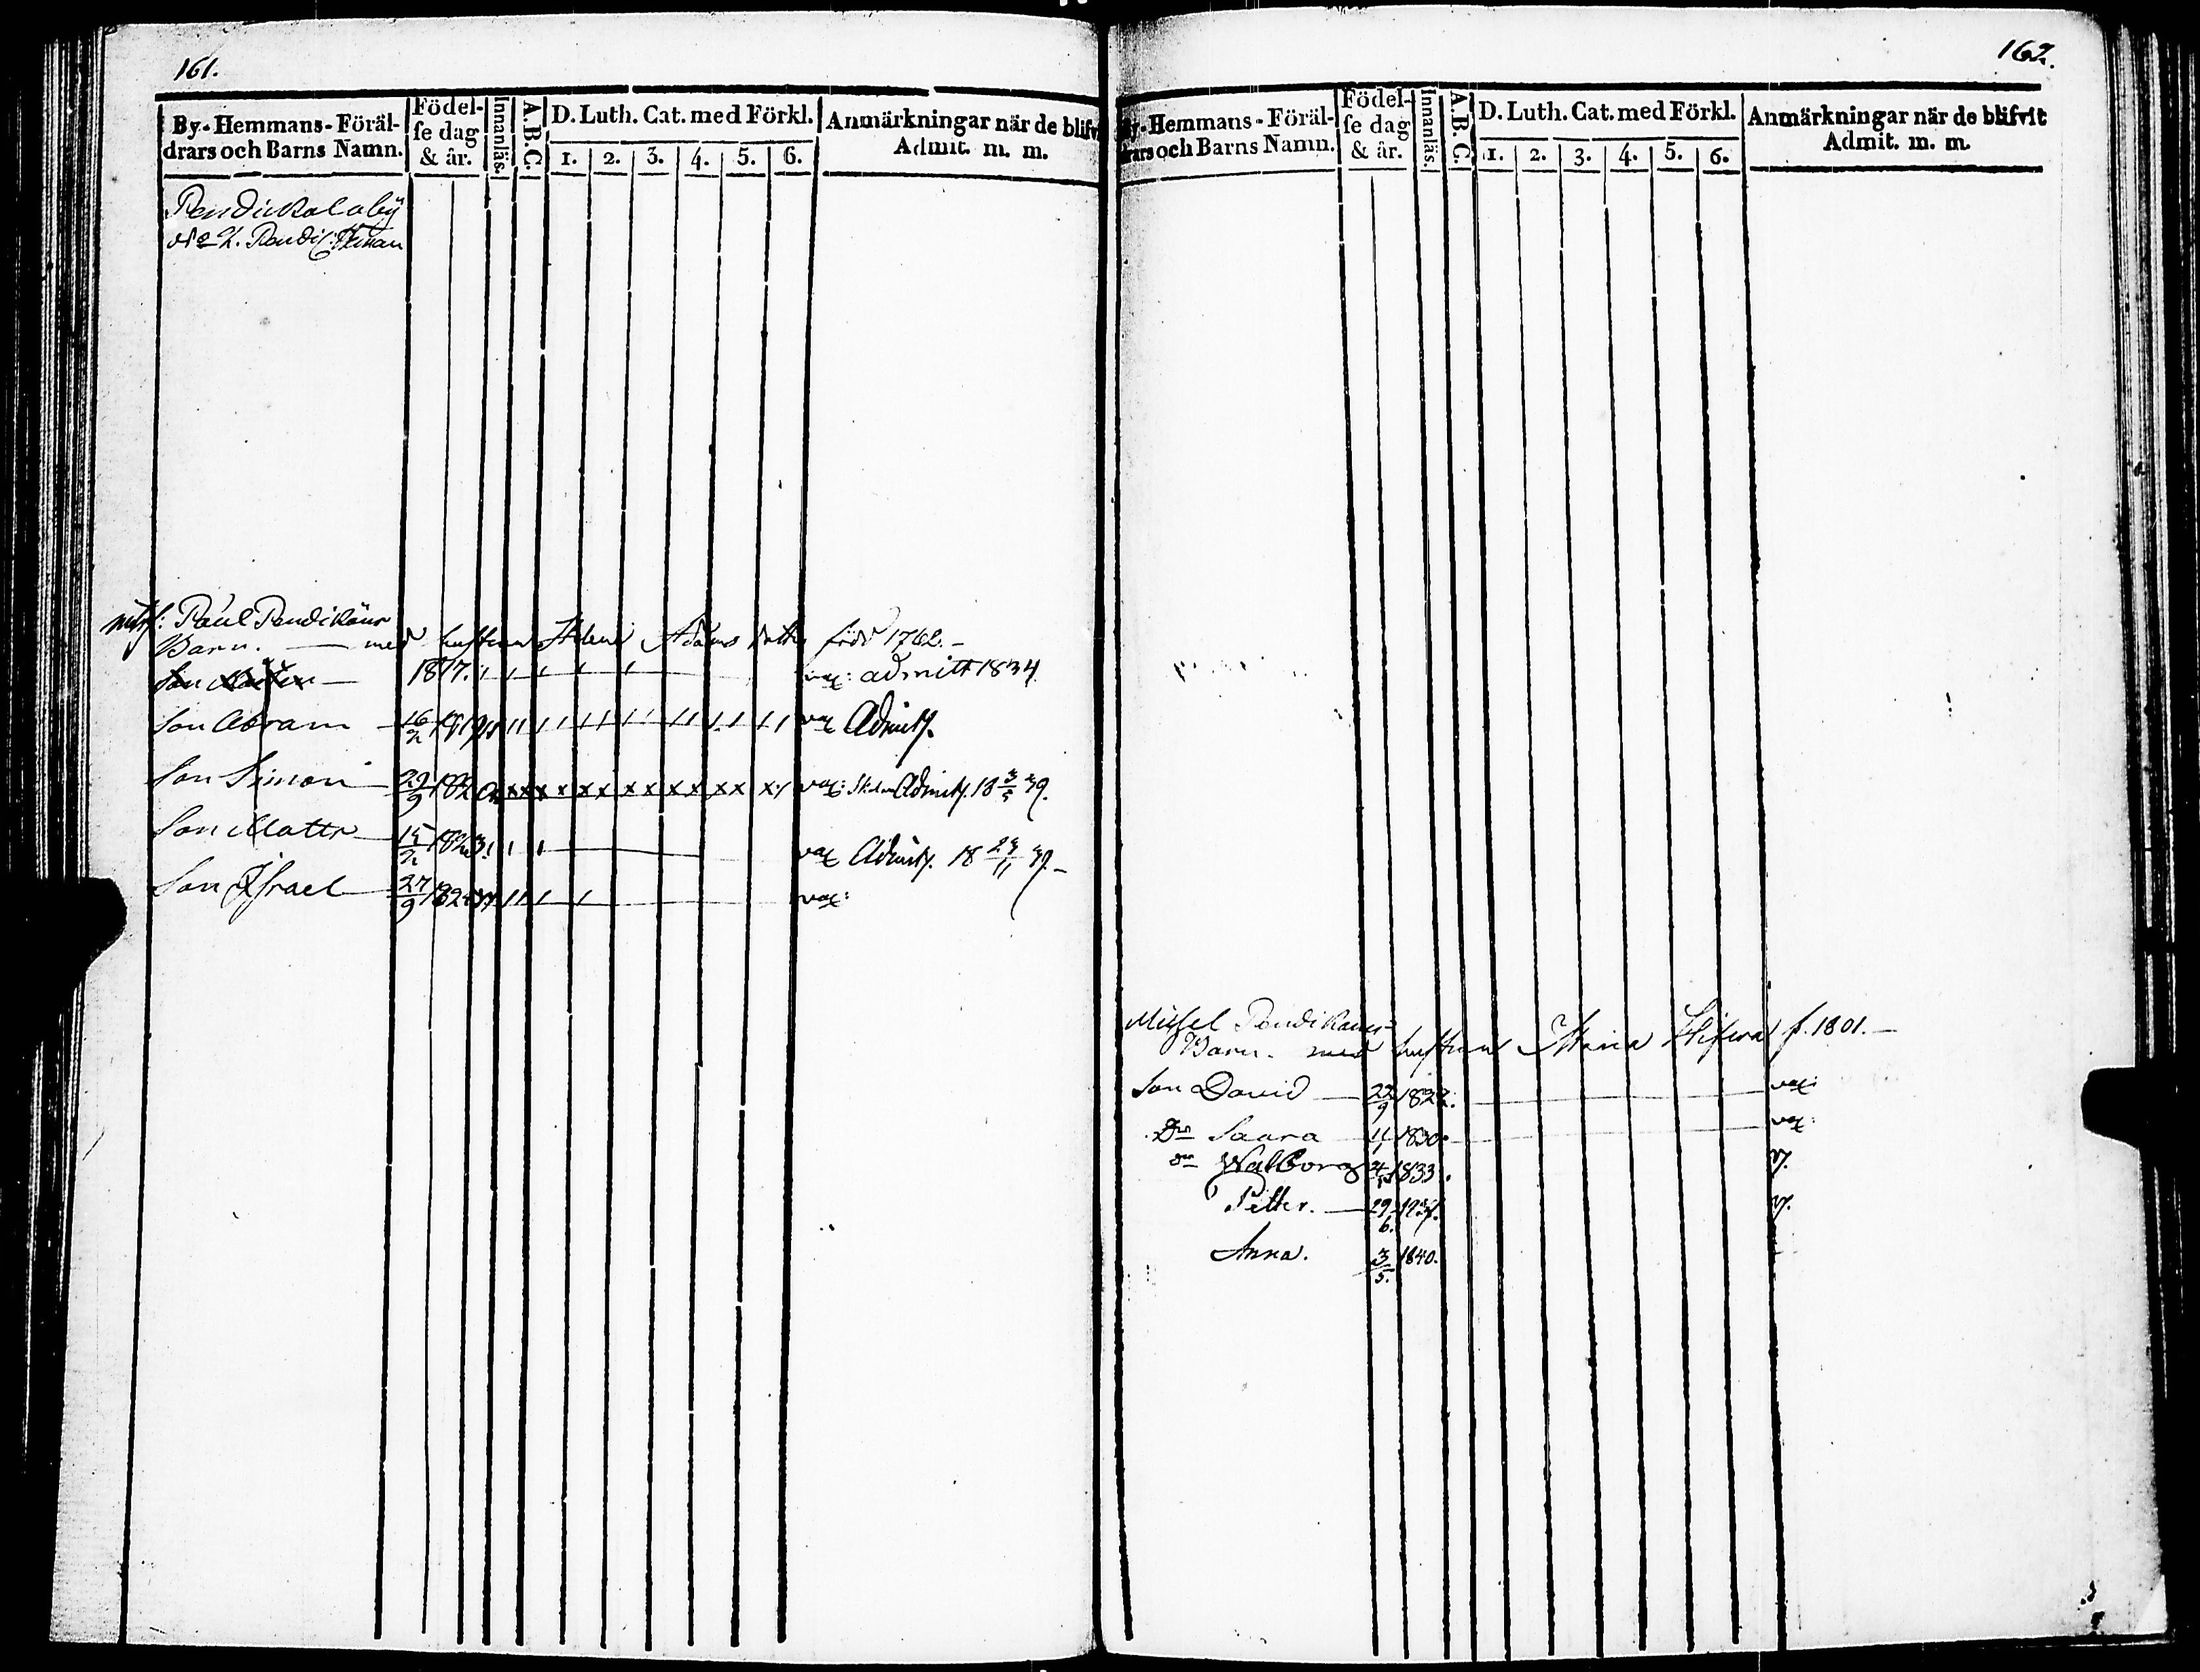 161.
By-Hemmans-Föräl-
drars och Barns Namn.
Födel-
se dag
& år.
Innanläs.
A.B.C.
D. Luth. Cat. med Förkl.
1. 2. 3. 4. 5. 6.
Anmärkningar när de blifv
Admit. m. m.
Pendikalaby
No 2.
Paul Pendikäus
Barn. — med hustrun född 1762.–
Son 1817. vax: admitt 1834
Son Abram 16/2 1819 vax Admitt.
Son Simon 29/9 vax: Admitt. 18 3/5 39.
Son Matts 15/2 1823. vax Admitt. 18 23/11 39.–
Son Israel 27/9 vax:
162.
By-Hemmans-Föräl-
drars och Barns Namn.
Födel-
se dag
& år.
Innanläs.
A.B.C.
D. Luth. Cat. med Förkl.
1. 2. 3. 4. 5. 6.
Anmärkningar när de blifvit
Admit. m. m.
Barn. med hustrun f. 1801.–
Son David — 22/9 vax:
Dr Saara 11/1 1830. vax:
dr Walborg 1833. v.
Petter. — 29/6. v.
Anna. 3/5. 1840.